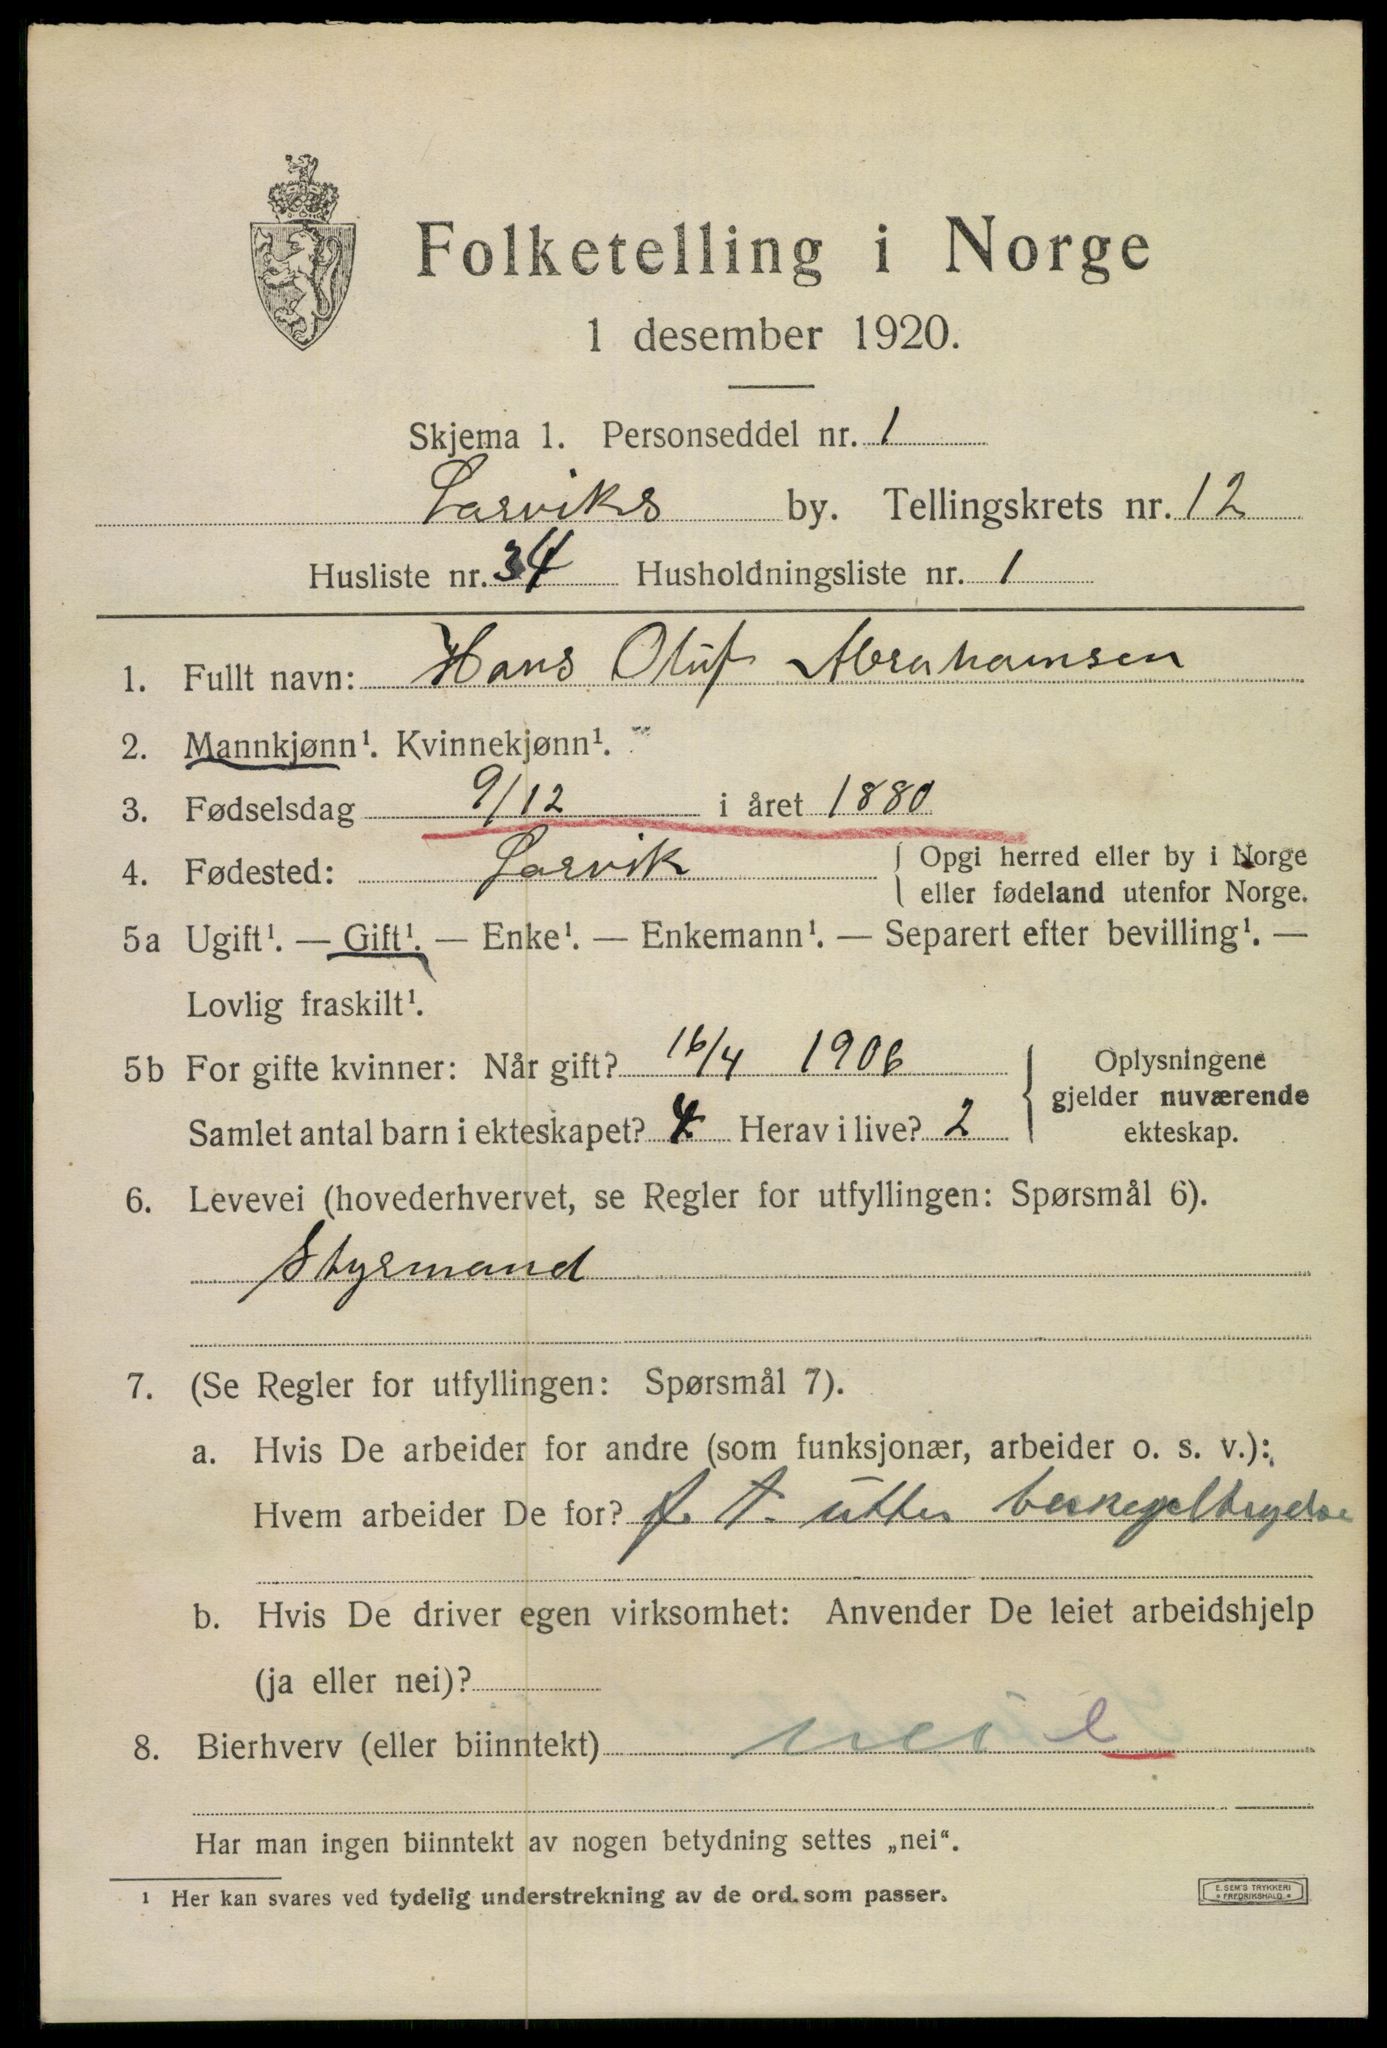 Folketelling i Norge
1 desember 1920.
Skjema 1. Personseddel nr. 1
Larviks by. Tellingskrets nr. 12
Husliste nr. 34 Husholdningsliste nr. 1
1. Fullt navn: Hans Oluf Abrahamsen
2. Mannkjønn¹. Kvinnekjønn¹.
3. Fødselsdag 9/12 i året 1880
4. Fødested: Larvik { Opgi herred eller by i Norge
eller fødeland utenfor Norge.
5a Ugift¹. — Gift¹. — Enke¹. — Enkemann¹. — Separert efter bevilling¹. —
Lovlig fraskilt¹.
5b For gifte kvinner: Når gift? 16/4 1906
Samlet antal barn i ekteskapet? 4 Herav i live? 2
} Oplysningene
gjelder nuværende
ekteskap.
6. Levevei (hovederhvervet, se Regler for utfyllingen: Spørsmål 6).
Styrmand
7. (Se Regler for utfyllingen: Spørsmål 7).
a. Hvis De arbeider for andre (som funksjonær, arbeider o. s. v.):
Hvem arbeider De for? f. t. uten
b. Hvis De driver egen virksomhet: Anvender De leiet arbeidshjelp
(ja eller nei)?
8. Bierhverv (eller biinntekt) nei
Har man ingen biinntekt av nogen betydning settes „nei“.
¹ Her kan svares ved tydelig understrekning av de ord som passer.
E. SEM'S TRYKKERI
* FREDRIKSHALD *